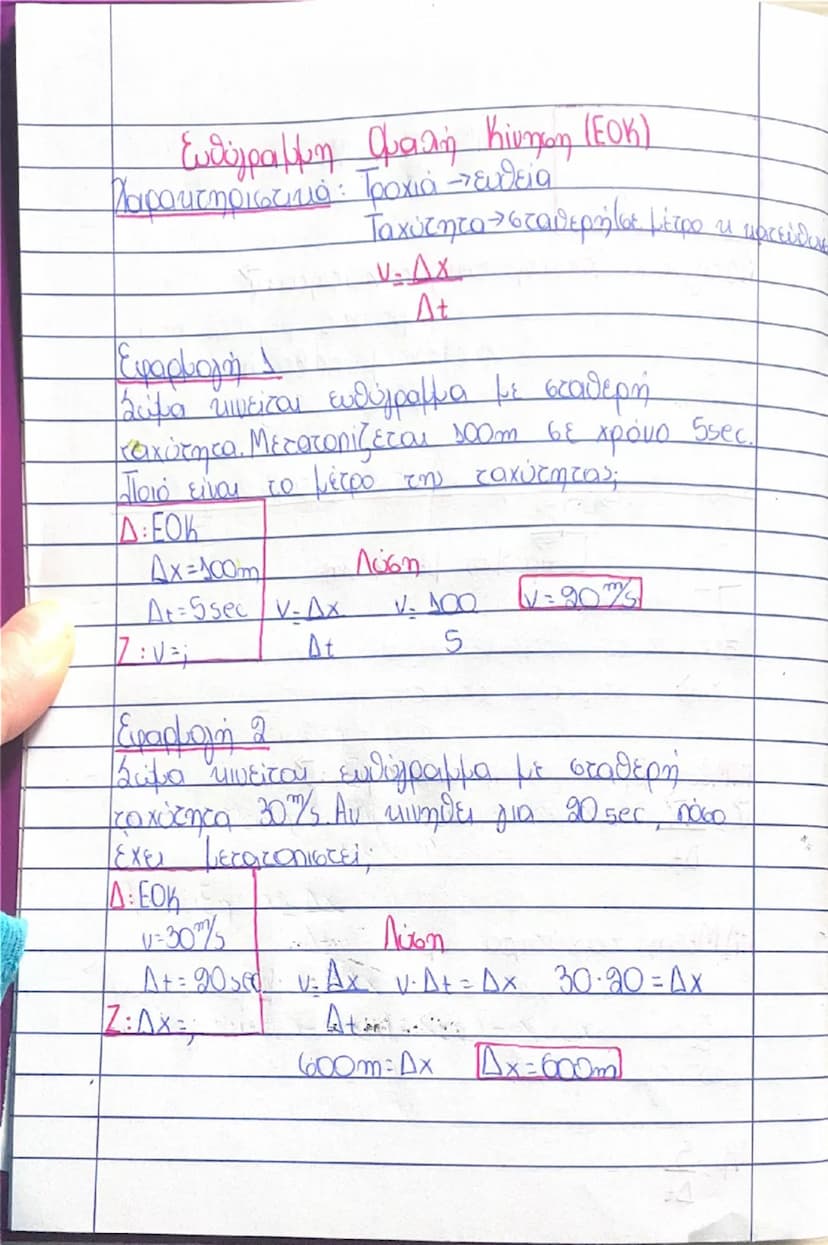 Ευθύγραμμη Ομαλή Κίνηση (ΕΟΚ)
Χαρακτηριστικά: Τροχιά → ευθεία
Ταχύτητα → σταθερή (σε μέτρο κ κατεύθυν
v = Δx
Δt
Εφαρμογή 1
Σώμα κινείται ευθύγραμμα με σταθερή
ταχύτητα. Μετατοπίζεται 100m σε χρόνο 5sec.
Ποιό είναι το μέτρο της ταχύτητας;
Δ: ΕΟΚ
Δx = 100m Λύση
Δt = 5sec v = Δx v = 100 v = 20 m/s
Ζ: v = ; Δt 5
Εφαρμογή 2
Σώμα κινείται ευθύγραμμα με σταθερή
ταχύτητα 30 m/s. Αν κινηθεί για 20 sec, πόσο
έχει μετατοπιστεί;
Δ: ΕΟΚ
v = 30 m/s Λύση
Δt = 20 sec v = Δx v · Δt = Δx 30 · 20 = Δx
Ζ: Δx = ; Δt
600m = Δx Δx = 600m